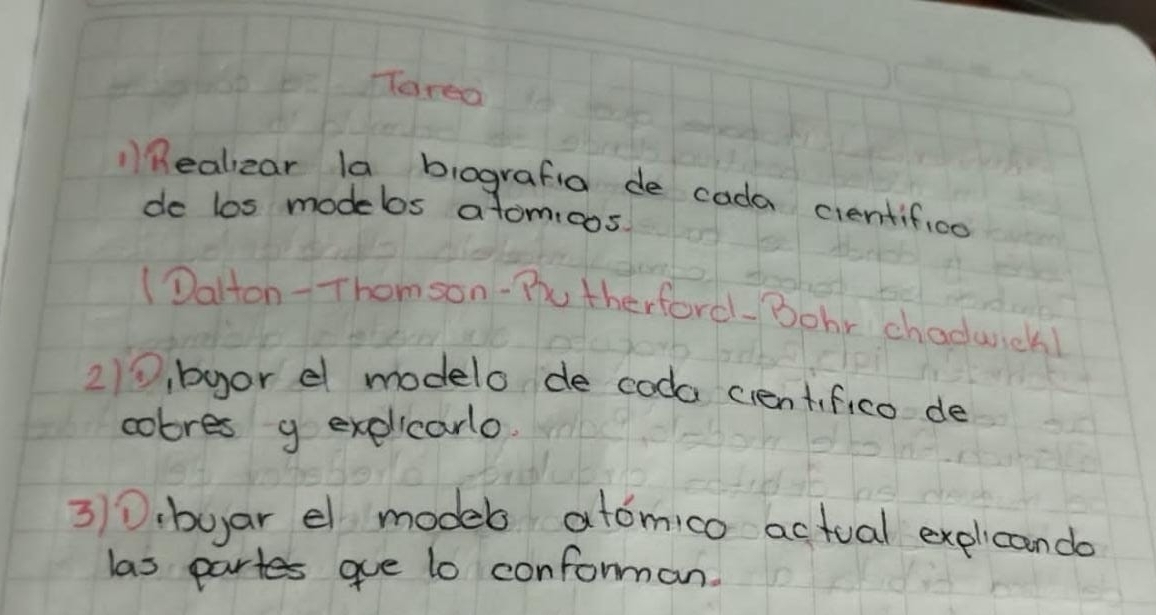 Tarea
1) Realizar la biografia de cada cientifico
de los modelos atomicos.
(Dalton - Thomson - Rutherford - Bohr chadwick)
2) Dibujar el modelo de cada cientifico de
colores y explicarlo.
3) Dibujar el modelo atómico actual explicando
las partes que lo conforman.